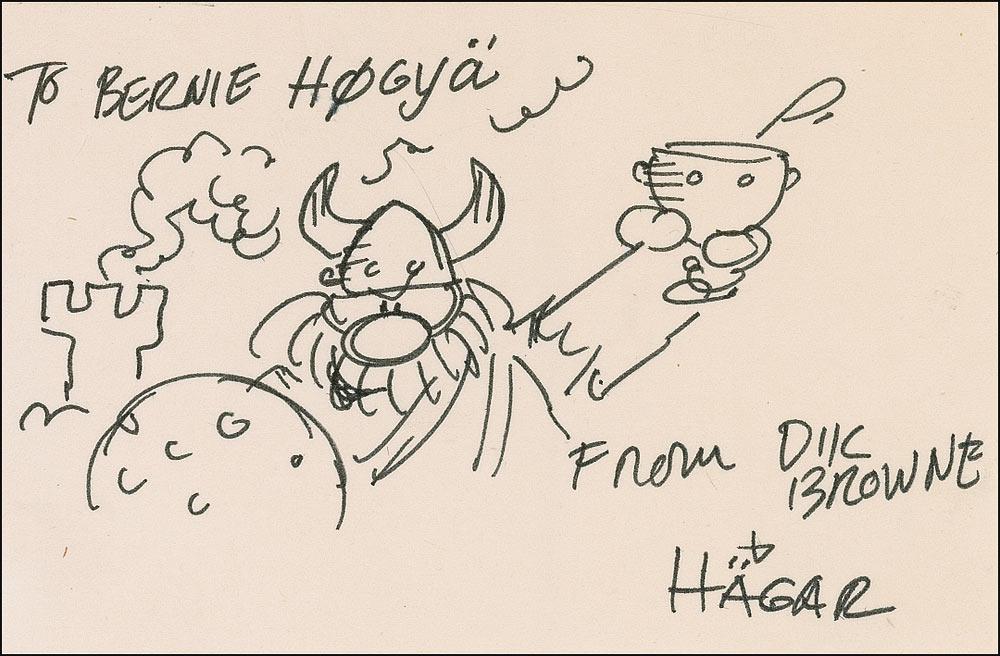 To BERNIE HØGYÄ
FROM DIK
BROWNE
HÄGAR